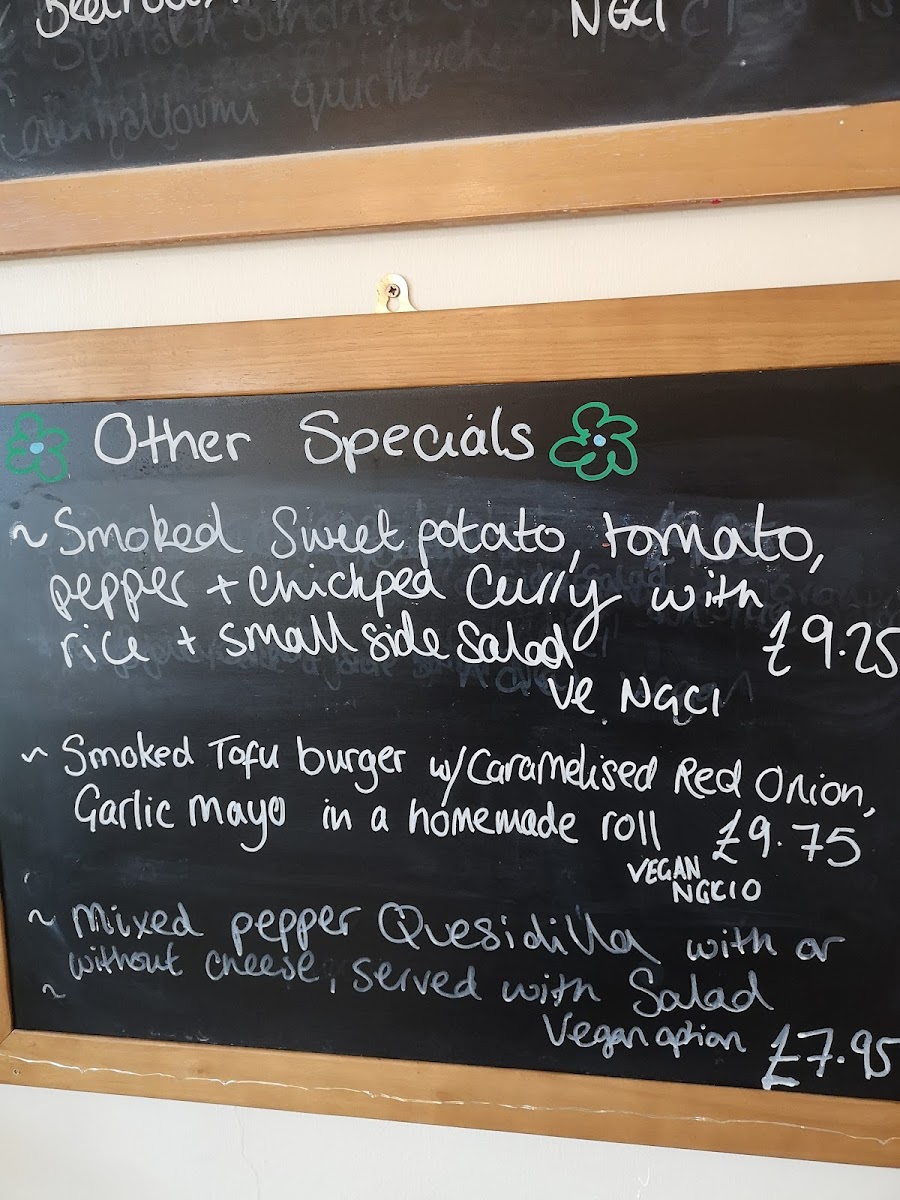 NGCI
Spinach Sundried
quiche
Other Specials
~ Smoked Sweet potato, tomato,
pepper + Chickpea Curry with
rice + small side Salad £9.25
Ve NGCI
~ Smoked Tofu burger w/Caramelised Red Onion,
Garlic Mayo in a homemade roll £9.75
VEGAN
NGCIO
~ Mixed pepper Quesidilla with or
without cheese, served with Salad
~
Vegan option £7.95